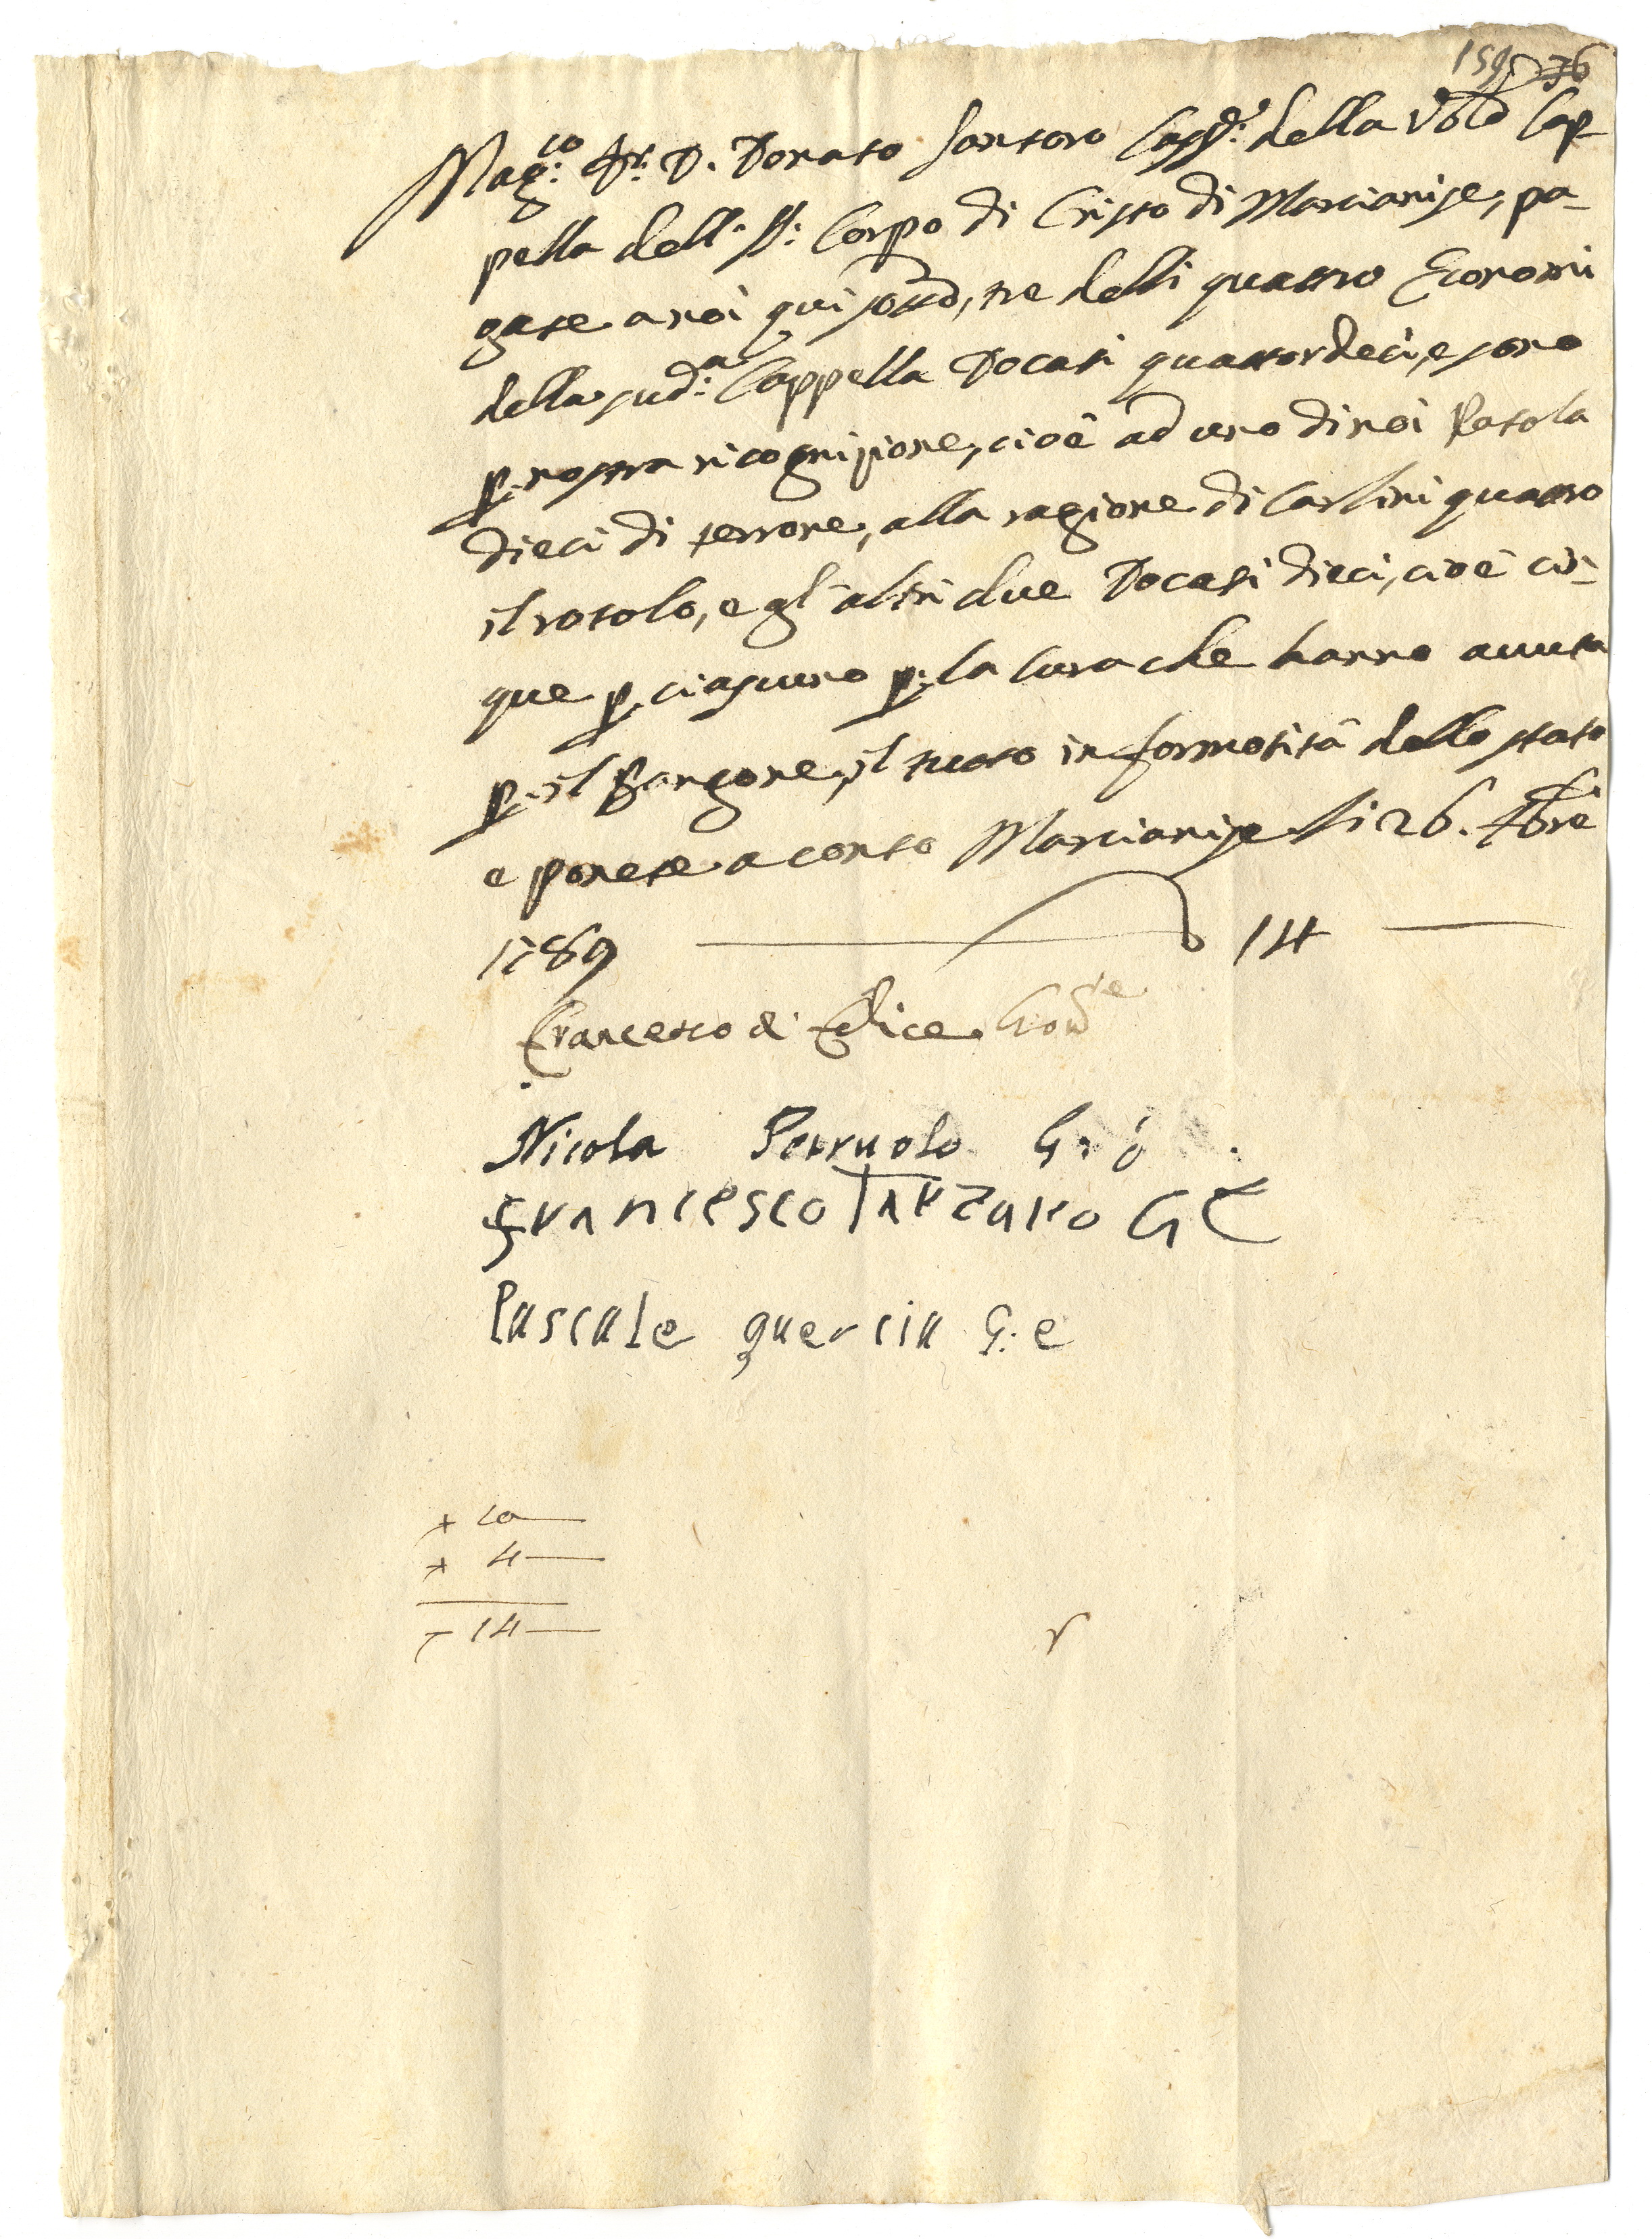 159 76
Mag:co Sr: D. Donato Santoro Cass:e della Vble Cap
pella dell. SS: Corpo di Cristo di Marcianise, pa-
gate a noi qui sottti, tre delli quattro Economi
della sud:a Cappella Docati quattordeci, e sono
p. nostra ricognizione, cioè ad uno di noi Rotola
dieci di terrone, alla ragione di Carlini quattro
il rotolo, e gl'altri due Docati dieci, cioè cin-
que p. ciascuno p. la cura che hanno avuta
p. il il tutto in formotità dello stato
e ponete a conto Marcianise li 26. Xbre
1789 14
Francesco di Felice
Nicola Perruolo
Francesco Tarzaro G E
Pascale quercia G: e
+ 10
+ 4
- 14